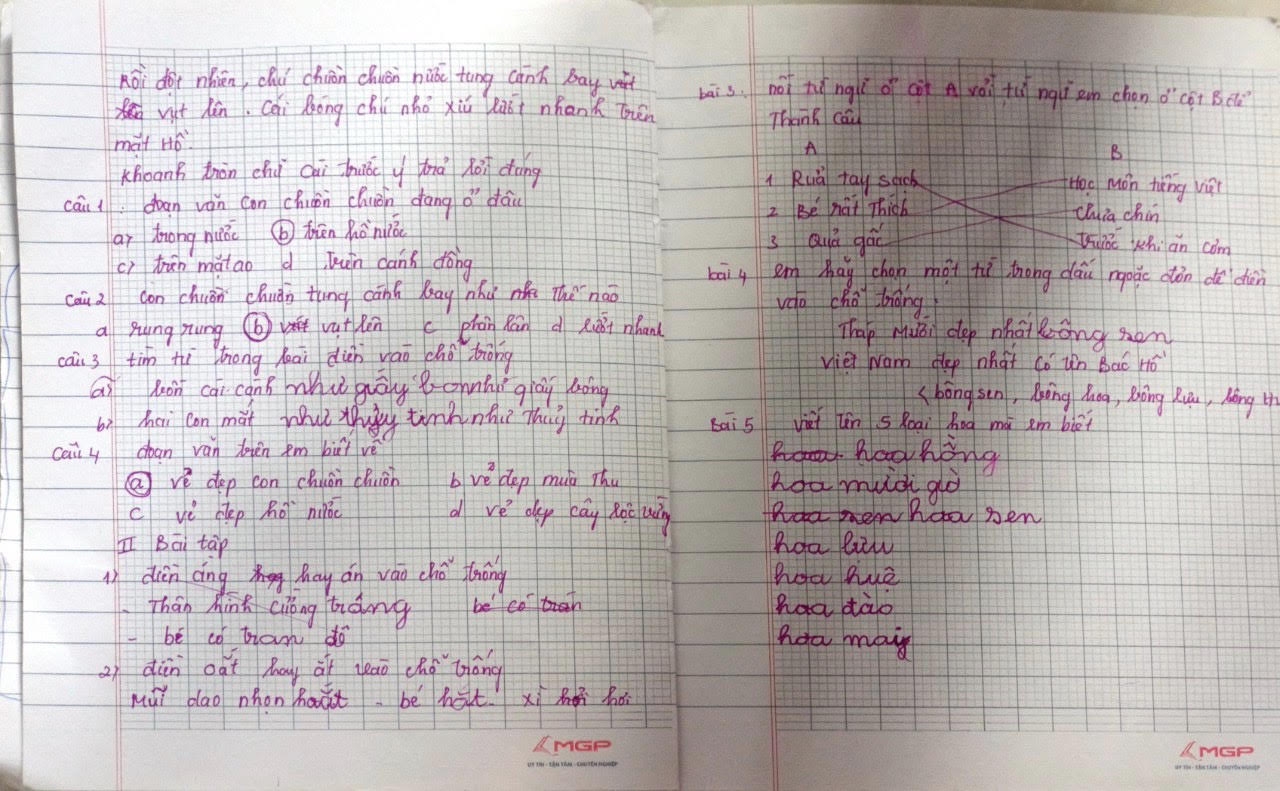 Rồi đột nhiên, chú chuồn chuồn nước tung cánh bay vút
lên vụt lên. Cái bóng chú nhỏ xíu lướt nhanh trên
mặt Hồ.
Khoanh tròn chữ cái trước ý trả lời đúng
Câu 1. đoạn văn con chuồn chuồn đang ở đâu
a) trong nước (b) trên hồ nước
c) trên mặt ao d trên cánh đồng
Câu 2 con chuồn chuồn tung cánh bay như thế nào
a rung rung (b) vụt lên c phân vân d lướt nhanh
Câu 3 tìm từ trong bài điền vào chỗ trống
a) bốn cái cánh như giấy bónnhư giấy bóng
b) hai con mắt như thủy tinhnhư Thuỷ tinh
Câu 4 đoạn văn trên em biết về
(a) vẻ đẹp con chuồn chuồn b vẻ đẹp mùa Thu
c vẻ đẹp hồ nước d vẻ đẹp cây lộc vừng
II Bài tập
1) điền áng hay án vào chỗ trống
- Thân hình cường tráng bé có tran
- bé có tran đồ
2) điền oắt hay ắt vào chỗ trống
Mũi dao nhọn hoắt - bé hắt xì hơi
MGP
UY TÍN - TẬN TÂM - CHUYÊN NGHIỆP
bài 3. nối từ ngữ ở cột A với từ ngữ em chọn ở cột B để
Thành câu
A B
1 Rửa tay sạch Học môn tiếng việt
2 Bé rất Thích chưa chín
3 Quả gấc trước khi ăn cơm
bài 4 em hãy chọn một từ trong dấu ngoặc đơn để điền
vào chỗ trống.
Tháp Mười đẹp nhất bông sen
Việt Nam đẹp nhất có tên Bác Hồ
(bông sen, bông hoa, bông lựu, bông
Bài 5 viết tên 5 loại hoa mà em biết
hoa hoa hồng
hoa mười giờ
hoa sen hoa sen
hoa lưu
hoa huệ
hoa đào
hoa mai
MGP
UY TÍN - TẬN TÂM - CHUYÊN NGHIỆP